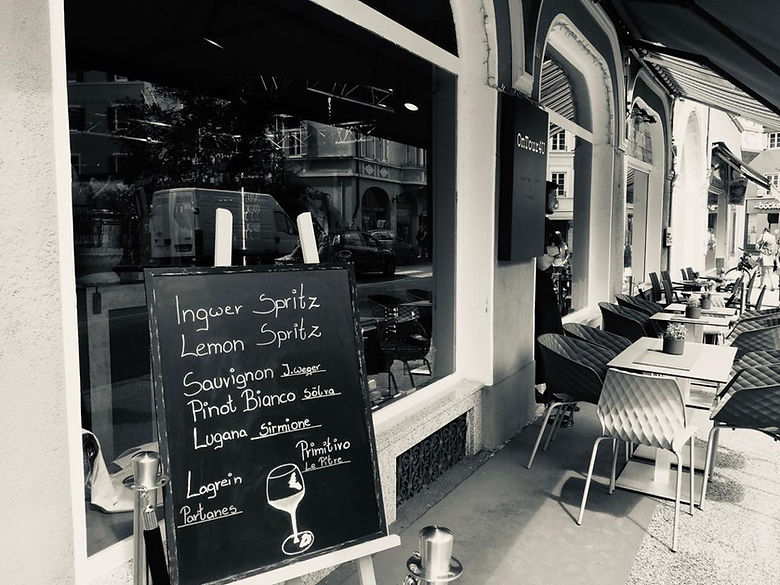 Ingwer Spritz
Lemon Spritz
Sauvignon J. Weger
Pinot Bianco Sölva
Lugana Sirmione
Primitivo
Le Pitre
Lagrein
Partanes
OnTour4U